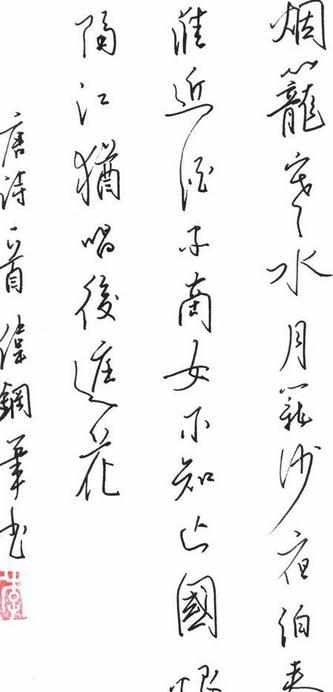 烟籠寒水月籠沙夜泊秦
淮近酒家商女不知亡國恨
隔江猶唱後庭花
唐詩一首鋼筆书